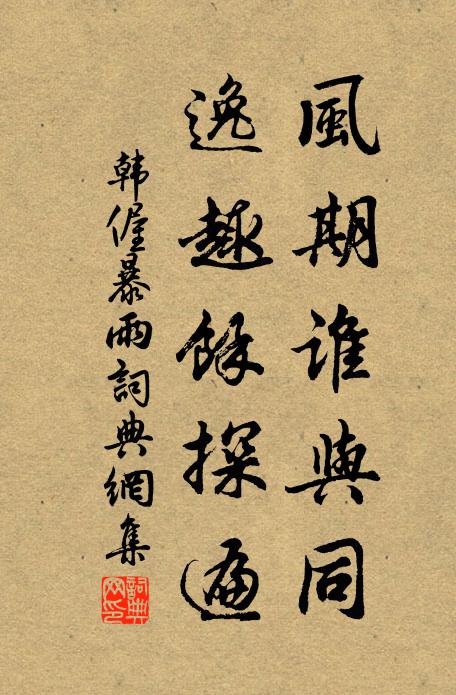 風期誰與同
逸趣餘探遍
韩偓暴雨詞典網集
詞典网印